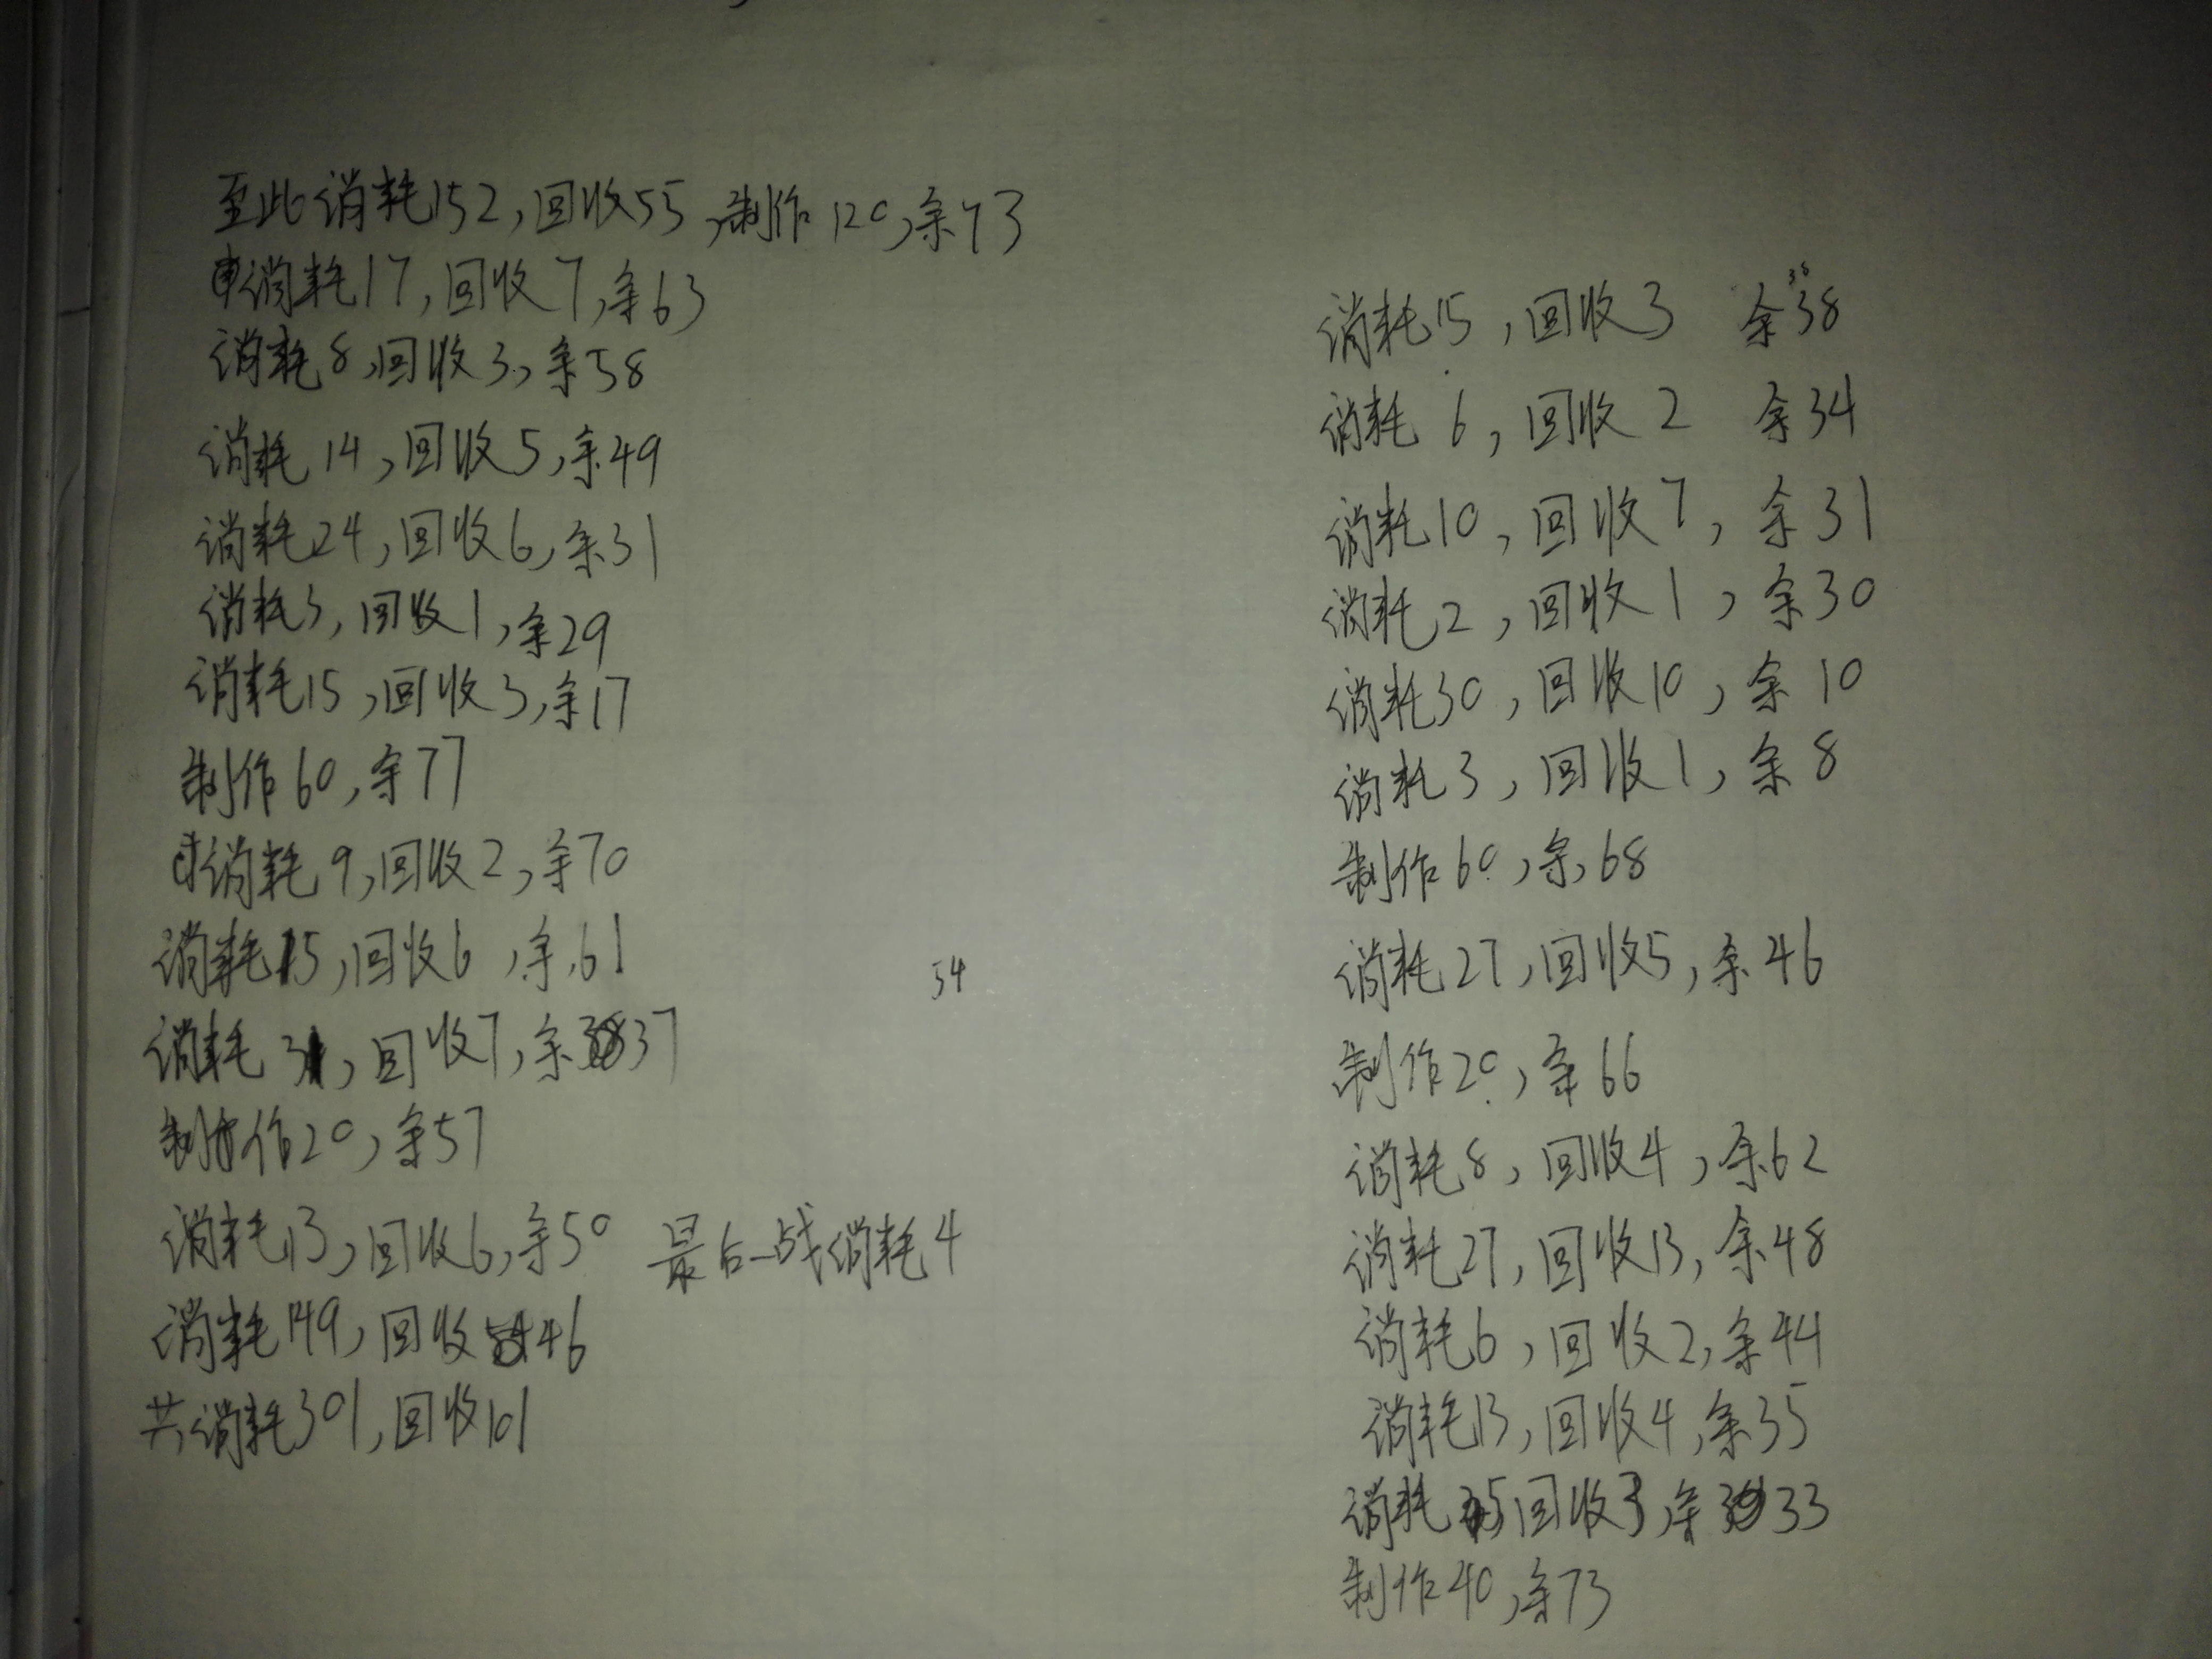 至此消耗152,回收55,制作120,余73
消耗17,回收7,余63
消耗8,回收3,余58
消耗14,回收5,余49
消耗24,回收6,余31
消耗3,回收1,余29
消耗15,回收3,余17
制作60,余77
消耗9,回收2,余70
消耗15,回收6,余61
消耗31,回收7,余37
制作20,余57
消耗13,回收6,余50 最后一战消耗4
消耗149,回收46
共消耗301,回收101
54
38
消耗15,回收3 余38
消耗6,回收2 余34
消耗10,回收7,余31
消耗2,回收1,余30
消耗30,回收10,余10
消耗3,回收1,余8
制作60,余68
消耗27,回收5,余46
制作20,余66
消耗8,回收4,余62
消耗27,回收13,余48
消耗6,回收2,余44
消耗13,回收4,余35
消耗5回收3,余33
制作40,余73